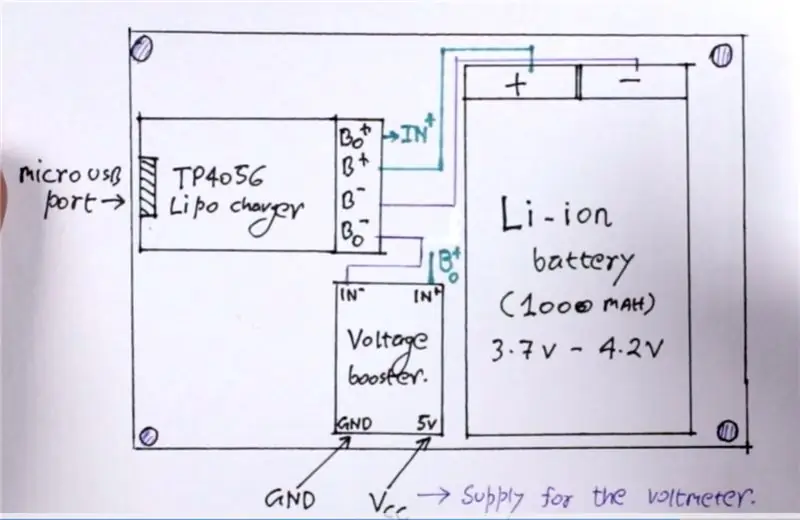 micro USB
port →
TP4056
Lipo charger
B₀⁺
B⁺
B⁻
B₀⁻
→ IN⁺
+
−
Li-ion
battery
(1000 MAH)
3.7V - 4.2V
B₀⁺
IN⁻ IN⁺
Voltage
booster.
GND 5V
GND
Vcc → Supply for the voltmeter.